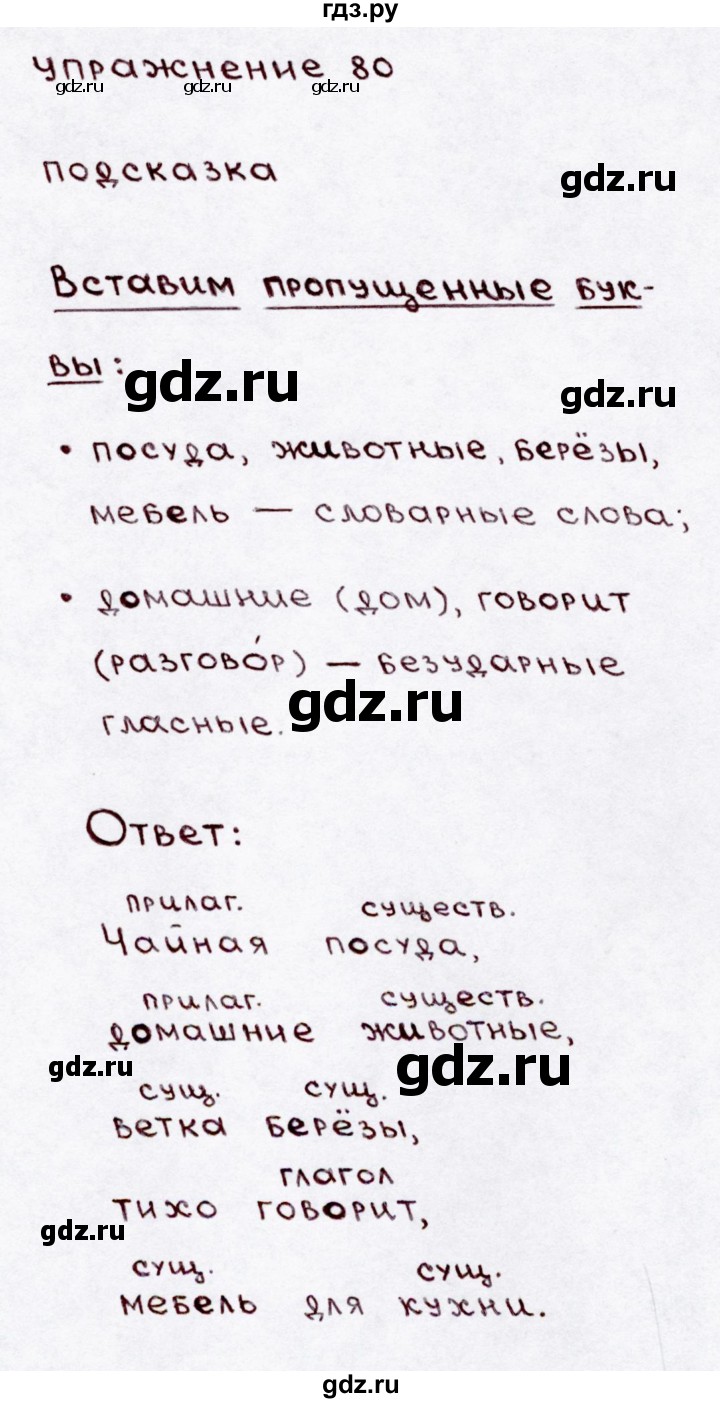 гдз.ру
упражнение 80
gdz.ru gdz.ru gdz.ru
подсказка
gdz.ru
Вставим пропущенные бук-
вы:
gdz.ru
gdz.ru
• посуда, животные, берёзы,
мебель — словарные слова;
• домашние (дом), говорит
(разгово́р) — безударные
gdz.ru
гласные.
Ответ:
прилаг. существ.
Чайная посуда,
прилаг. существ.
домашние животные,
gdz.ru
gdz.ru
сущ. сущ.
ветка берёзы,
глагол
тихо говорит,
gdz.ru
сущ. сущ.
мебель для кухни.
gdz.ru